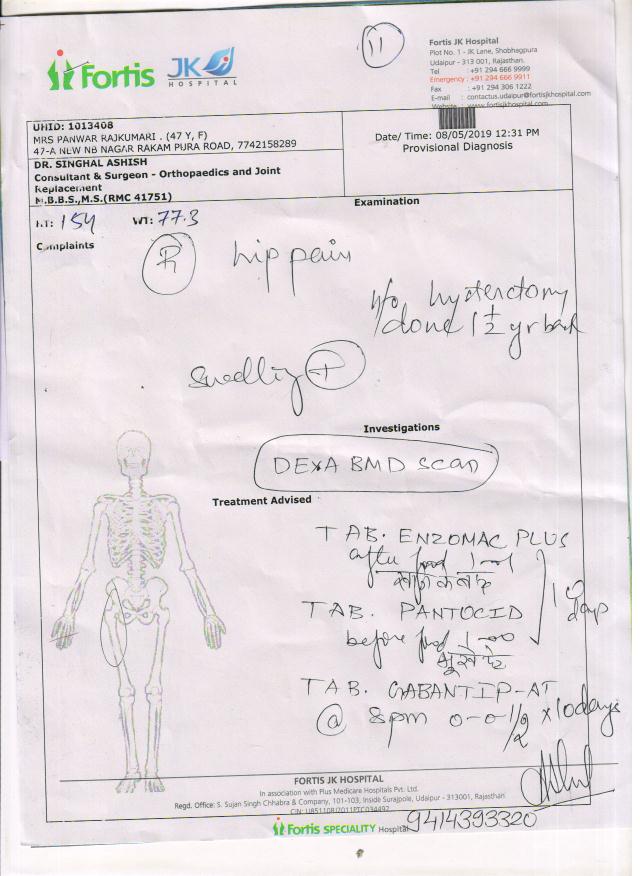 11
Fortis JK HOSPITAL
Fortis JK Hospital
Plot No. 1 - JK Lane, Shobhagpura
Udaipur - 313 001, Rajasthan.
Tel : +91 294 666 9999
Emergency : +91 294 666 9911
Fax : +91 294 306 1222
E-mail : contactus.udaipur@fortisjkhospital.com
Website : www.fortisjkhospital.com
UHID: 1013408
MRS PANWAR RAJKUMARI . (47 Y, F)
47-A NEW NB NAGAR RAKAM PURA ROAD, 7742158289
Date/ Time: 08/05/2019 12:31 PM
Provisional Diagnosis
DR. SINGHAL ASHISH
Consultant & Surgeon - Orthopaedics and Joint
Replacement
M.B.B.S.,M.S.(RMC 41751)
Examination
HT: 154 WT: 77.3
Complaints
R hip pain
h/o hysterctomy
done 1 1/2 ± yr back
Swelling +
Investigations
DEXA BMD scan
Treatment Advised
TAB. ENZOMAC PLUS
after food 1-0-1
TAB. PANTOCID
before food 1-0-0
10 days
TAB. GABANTIP-AT
@ 8pm 0-0-1/2 x 10 days
FORTIS JK HOSPITAL
In association with Plus Medicare Hospitals Pvt. Ltd.
Regd. Office: S. Sujan Singh Chhabra & Company, 101-103, Inside Surajpole, Udaipur - 313001, Rajasthan
CIN: U85110RJ2011PTC034492
Fortis SPECIALITY Hospital 9414393320